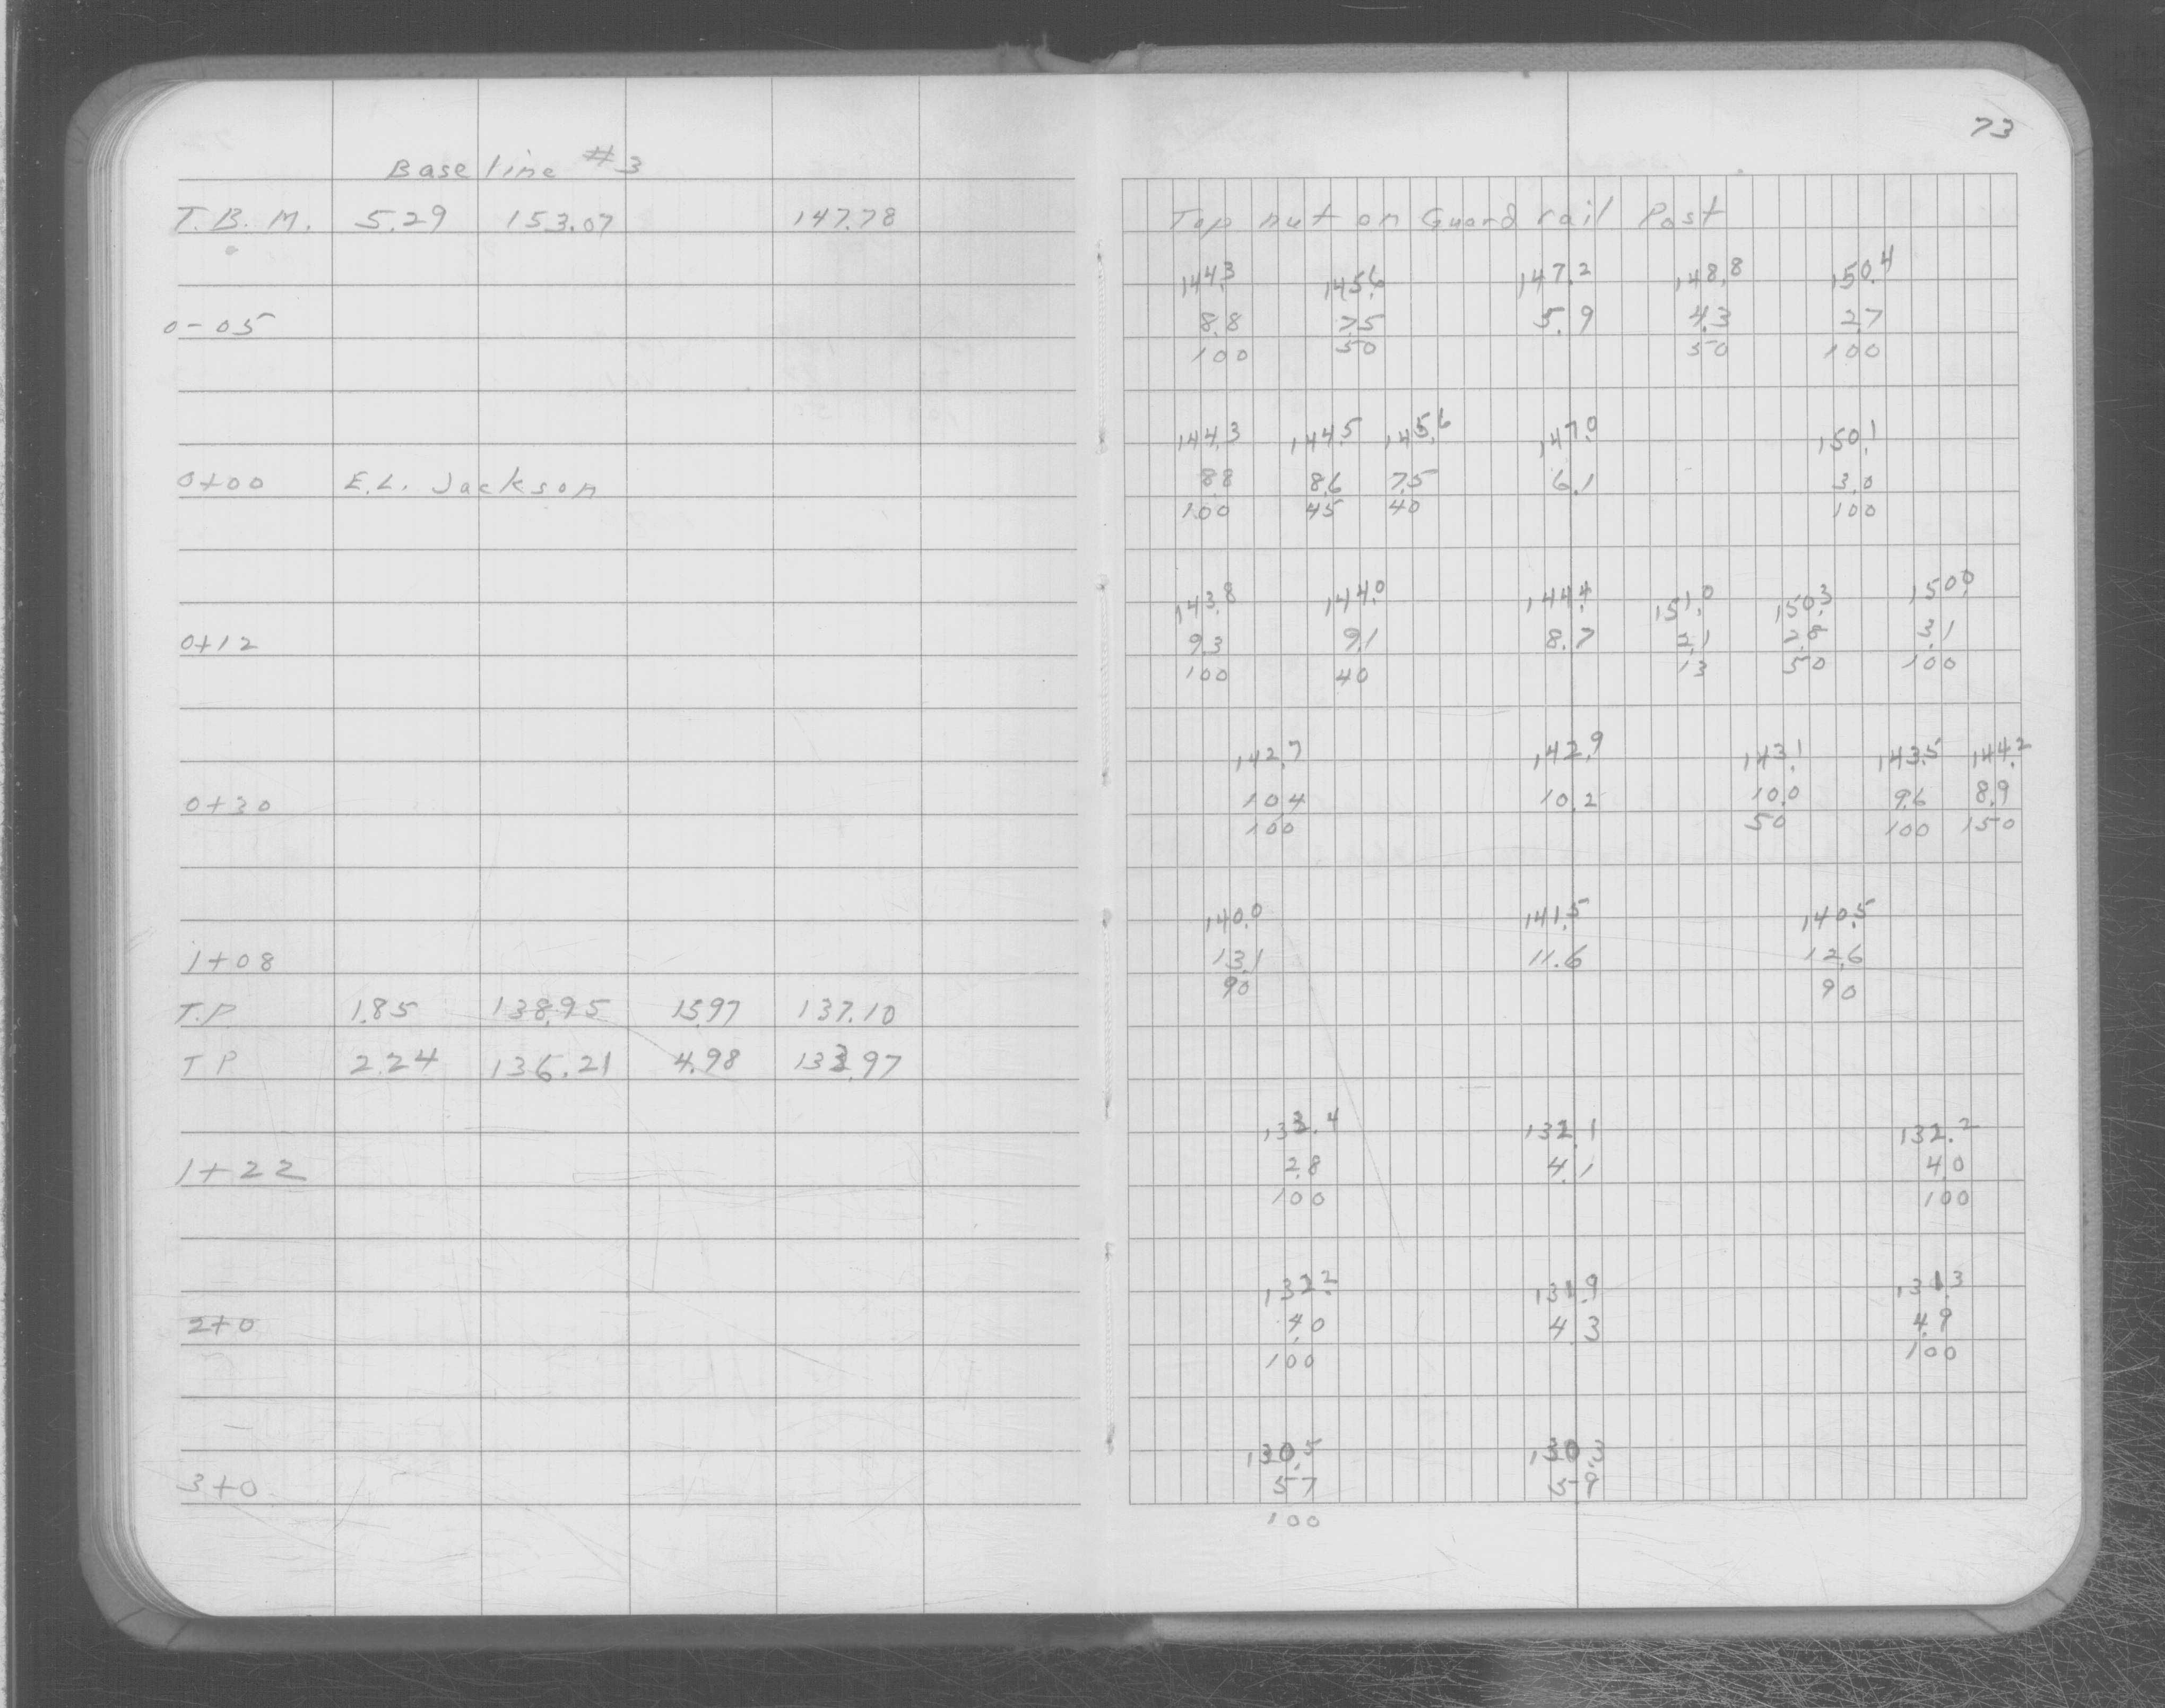 73
Baseline #3
T.B.M. 5.29 153.07 147.78 Top nut on Guard rail Post
144.3 145.6 147.2 148.8 150.4
0-05 8.8 7.5 5.9 4.3 2.7
100 50 50 100
144.3 144.5 145.6 147.0 150.1
0+00 E.L. Jackson 8.8 8.6 7.5 6.1 3.0
100 45 40 100
143.8 144.0 144.4 151.0 150.3 150.0
0+12 9.3 9.1 8.7 2.1 2.8 3.1
100 40 13 50 100
142.7 142.9 143.1 143.5 144.2
0+30 10.4 10.2 10.0 9.6 8.9
100 50 100 150
140.0 141.5 140.5
1+08 13.1 11.6 12.6
90 90
T.P. 1.85 138.95 15.97 137.10
T P 2.24 136.21 4.98 133.97
133.4 132.1 132.2
1+22 2.8 4.1 4.0
100 100
132.2 131.9 131.3
2+0 4.0 4.3 4.9
100 100
130.5 130.3
3+0 5.7 5.9
100